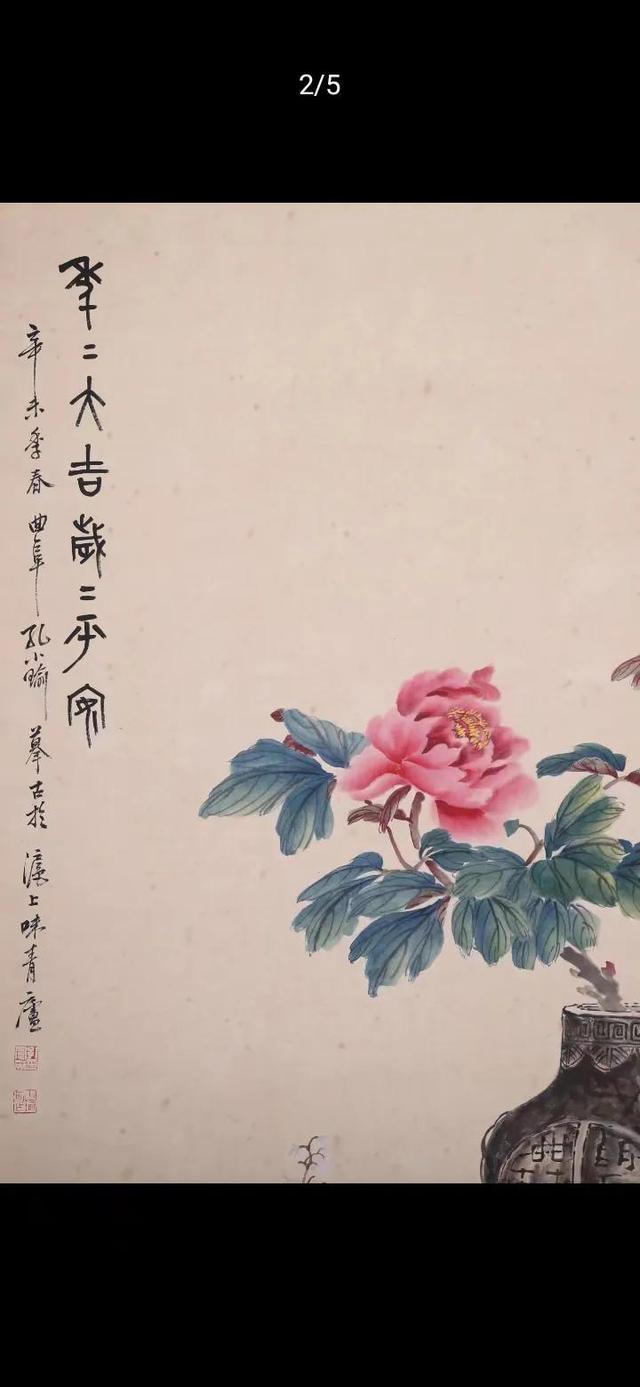 2/5
年二大吉歲二平安
辛未季春曲阜孔小瑜摹古於滬上味青廬